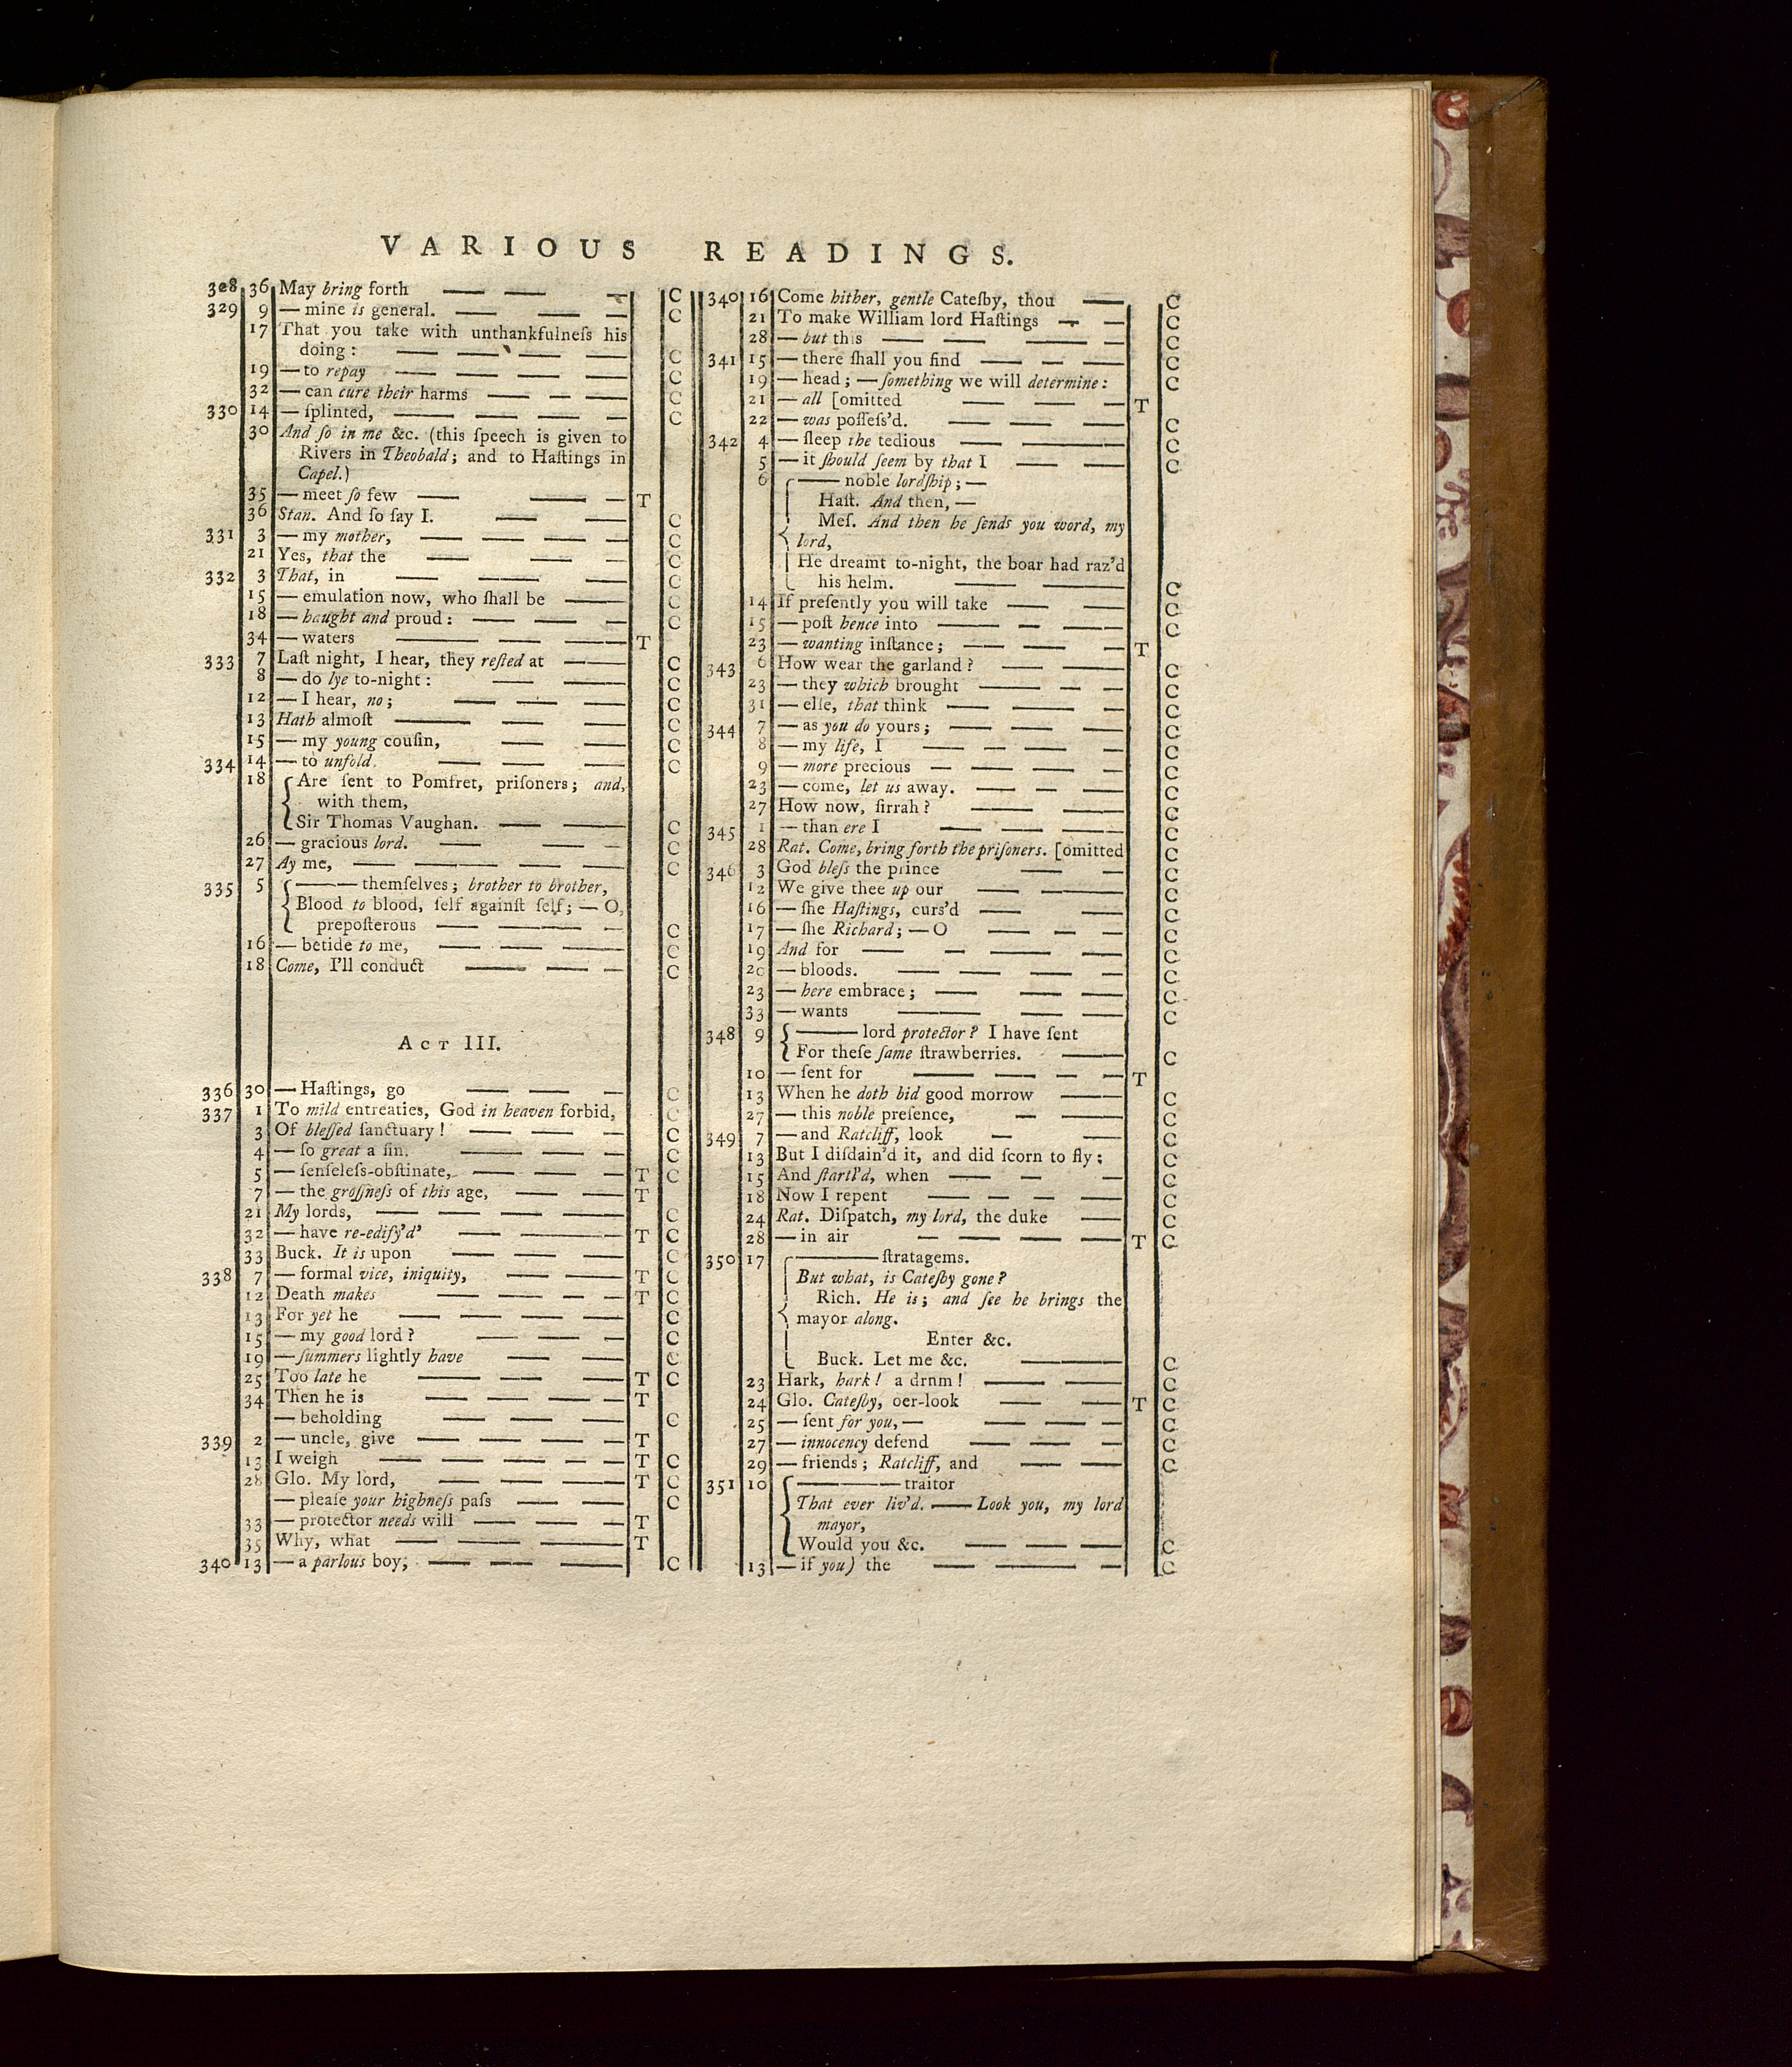 VARIOUS READINGS.
328 36 May bring forth — — — C
329 9 — mine is general. — — — C
17 That you take with unthankfulneſs his
doing: — — — — C
19 — to repay — — — — C
32 — can cure their harms — — — C
330 14 — ſplinted, — — — — C
30 And ſo in me &c. (this ſpeech is given to
Rivers in Theobald; and to Haſtings in
Capel.)
35 — meet ſo few — — — T
36 Stan. And ſo ſay I. — — C
331 3 — my mother, — — — — C
21 Yes, that the — — — C
332 3 That, in — — — C
15 — emulation now, who ſhall be — C
18 — haught and proud: — — — C
34 — waters — — — T
333 7 Laſt night, I hear, they reſted at — — C
8 — do lye to-night: — — C
12 — I hear, no; — — — C
13 Hath almoſt — — — C
15 — my young couſin, — — C
334 14 — to unfold. — — — C
18 Are ſent to Pomfret, priſoners; and,
with them,
Sir Thomas Vaughan. — — C
26 — gracious lord. — — — C
27 Ay me, — — — — C
335 5 —— themſelves; brother to brother,
Blood to blood, ſelf againſt ſelf; — O,
prepoſterous — — — — C
16 — betide to me, — — — C
18 Come, I'll conduct — — — C
ACT III.
336 30 — Haſtings, go — — — C
337 1 To mild entreaties, God in heaven forbid, C
3 Of bleſſed ſanctuary! — — — C
4 — ſo great a ſin. — — — C
5 — ſenſeleſs-obſtinate, — — — T C
7 — the groſſneſs of this age, — — T
21 My lords, — — — — C
32 — have re-edify'd' — — T C
33 Buck. It is upon — — — C
338 7 — formal vice, iniquity, — — T C
12 Death makes — — — — T C
13 For yet he — — — — C
15 — my good lord? — — — C
19 — ſummers lightly have — — C
25 Too late he — — — — T C
34 Then he is — — — — T
— beholding — — — C
339 2 — uncle, give — — — — T
13 I weigh — — — — — T C
28 Glo. My lord, — — — T C
— pleaſe your highneſs paſs — — C
33 — protector needs will — — — T
35 Why, what — — — T
340 13 — a parlous boy; — — — C
340 16 Come hither, gentle Cateſby, thou — C
21 To make William lord Haſtings — — C
28 — but this — — — — C
341 15 — there ſhall you find — — — C
19 — head; — ſomething we will determine: C
21 — all [omitted — — — T
22 — was poſſeſs'd. — — — C
342 4 — ſleep the tedious — — C
5 — it ſhould ſeem by that I — — C
6 —— noble lordſhip; —
Haſt. And then, —
Meſ. And then he ſends you word, my
lord,
He dreamt to-night, the boar had raz'd
his helm. — — C
14 If preſently you will take — — C
15 — poſt hence into — — — C
23 — wanting inſtance; — — — T
343 6 How wear the garland? — — C
23 — they which brought — — — C
31 — elſe, that think — — — C
344 7 — as you do yours; — — — C
8 — my life, I — — — — C
9 — more precious — — — — C
23 — come, let us away. — — — C
27 How now, ſirrah? — — C
345 1 — than ere I — — — C
28 Rat. Come, bring forth the priſoners. [omitted C
346 3 God bleſs the prince — — C
12 We give thee up our — — C
16 — ſhe Haſtings, curs'd — — C
17 — ſhe Richard; — O — — — C
19 And for — — — — C
20 — bloods. — — — — C
23 — here embrace; — — — C
33 — wants — — — C
348 9 —— lord protector? I have ſent
For theſe ſame ſtrawberries. — C
10 — ſent for — — — — T
13 When he doth bid good morrow — C
27 — this noble preſence, — — C
349 7 — and Ratcliff, look — — C
13 But I diſdain'd it, and did ſcorn to fly; C
15 And ſtartl'd, when — — — C
18 Now I repent — — — — C
24 Rat. Diſpatch, my lord, the duke — C
28 — in air — — — — T C
350 17 ——— ſtratagems.
But what, is Cateſby gone?
Rich. He is; and ſee he brings the
mayor along.
Enter &c.
Buck. Let me &c. — C
23 Hark, hark! a drnm! — — C
24 Glo. Cateſby, oer-look — — T C
25 — ſent for you, — — — — C
27 — innocency defend — — — C
29 — friends; Ratcliff, and — — C
351 10 ——— traitor
That ever liv'd. — Look you, my lord
mayor,
Would you &c. — — — C
13 — if you) the — — — C